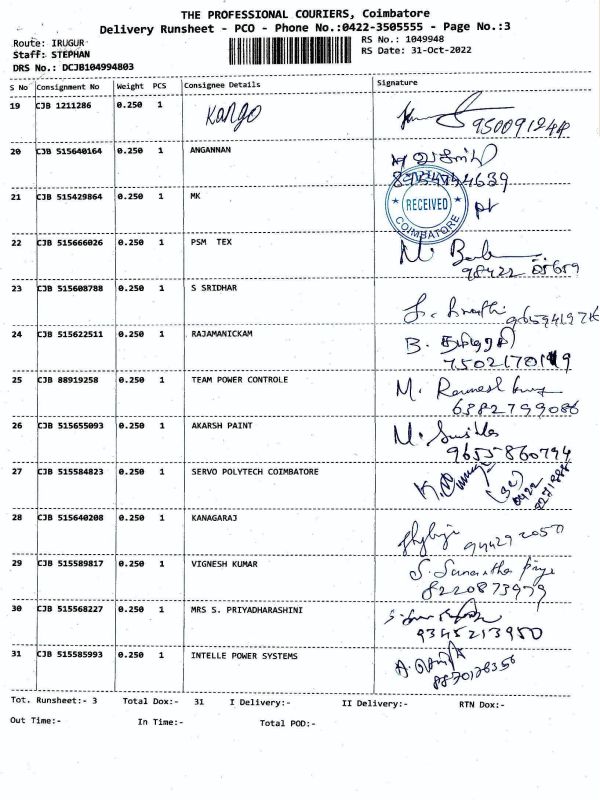 THE PROFESSIONAL COURIERS, Coimbatore
Delivery Runsheet - PCO - Phone No.:0422-3505555 - Page No.:3
Route: IRUGUR
RS No.: 1049948
Staff: STEPHAN
RS Date: 31-Oct-2022
DRS No.: DCJB104994803
S No Consignment No Weight PCS Consignee Details Signature
19 CJB 1211286 0.250 1 Kango
20 CJB 515640164 0.250 1 ANGANNAN
21 CJB 515429864 0.250 1 MK
RECEIVED
COIMBATORE
22 CJB 515666026 0.250 1 PSM TEX M.
23 CJB 515608788 0.250 1 S SRIDHAR
24 CJB 515622511 0.250 1 RAJAMANICKAM B.
25 CJB 88919258 0.250 1 TEAM POWER CONTROLE M.
6382799086
26 CJB 515655093 0.250 1 AKARSH PAINT M.
9655860794
27 CJB 515584823 0.250 1 SERVO POLYTECH COIMBATORE
28 CJB 515640208 0.250 1 KANAGARAJ
29 CJB 515589817 0.250 1 VIGNESH KUMAR
8220873979
30 CJB 515568227 0.250 1 MRS S. PRIYADHARASHINI
9345213950
31 CJB 515585993 0.250 1 INTELLE POWER SYSTEMS
Tot. Runsheet:- 3 Total Dox:- 31 I Delivery:- II Delivery:- RTN Dox:-
Out Time:- In Time:- Total POD:-